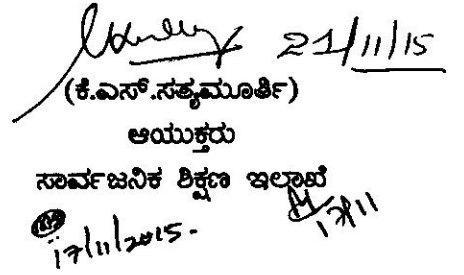 21/11/15
(ಕೆ.ಎಸ್.ಸತ್ಯಮೂರ್ತಿ)
ಆಯುಕ್ತರು
ಸಾರ್ವಜನಿಕ ಶಿಕ್ಷಣ ಇಲಾಖೆ
17/11
17/11/2015.